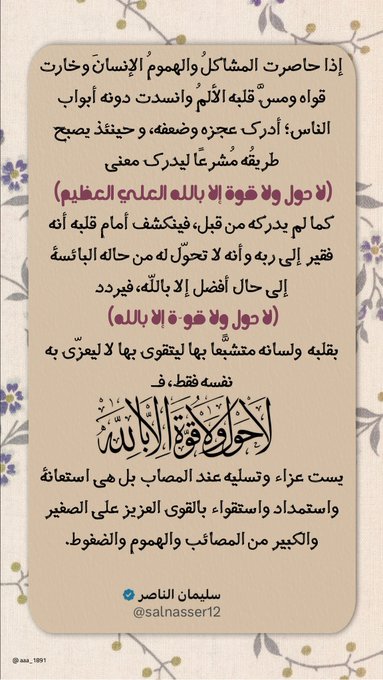 إذا حاصرت المشاكلُ والهمومُ الإنسانَ وخارت
قواه ومسَّ قلبه الألمُ وانسدت دونه أبواب
الناس؛ أدرك عجزه وضعفه، و حينئذ يصبح
طريقُه مُشرعًا ليدرك معنى
(لا حول ولا قوة إلا بالله العلي العظيم)
كما لم يدركه من قبل، فينكشف أمام قلبه أنه
فقير إلى ربه وأنه لا تحوّل له من حاله البائسة
إلى حال أفضل إلا باللّه، فيردد
(لا حول ولا قوة إلا بالله)
بقلبه ولسانه متشبَّعا بها ليتقوى بها لا ليعزّى به
نفسه فقط، فـ
لَا حَوْلَ وَلَا قُوَّةَ إِلَّا بِاللَّهِ
يست عزاء وتسليه عند المصاب بل هى استعانة
واستمداد واستقواء بالقوى العزيز على الصغير
والكبير من المصائب والهموم والضغوط.
سليمان الناصر
@salnasser12
@aaa_1891